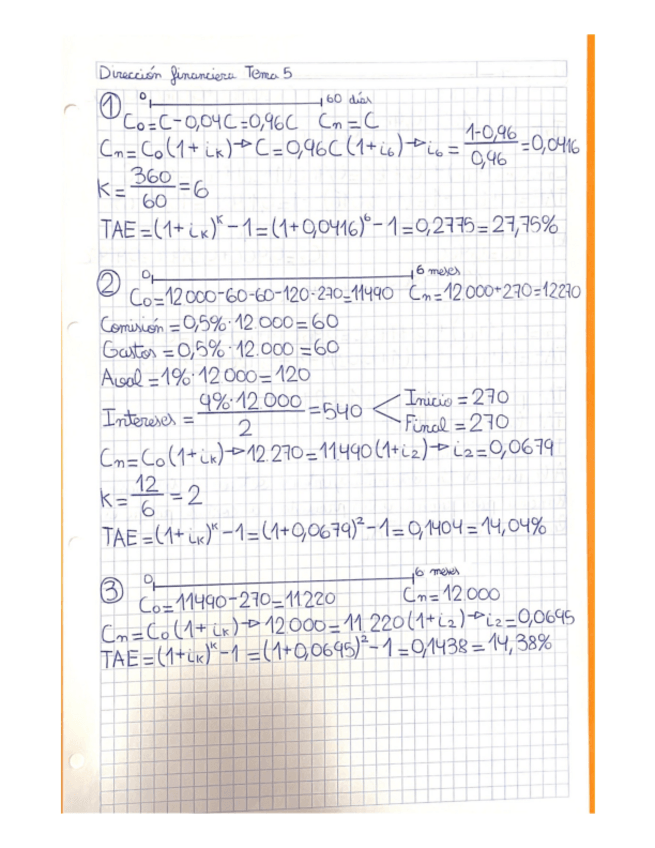 Dirección financiera Tema 5
① 0 60 días
C₀=C-0,04C=0,96C Cn=C
Cn=C₀(1+iₖ)→C=0,96C(1+i₆)→i₆=(1-0,96)/0,96=0,0416
K=360/60=6
TAE=(1+iₖ)ᵏ-1=(1+0,0416)⁶-1=0,2775=27,75%
② 0 6 meses
C₀=12000-60-60-120-270=11490 Cn=12000+270=12270
Comisión=0,5%·12.000=60
Gastos=0,5%·12.000=60
Aval=1%·12000=120
Intereses=9%·12.000/2=540 < Inicio=270
Final=270
Cn=C₀(1+iₖ)→12.270=11490(1+i₂)→i₂=0,0679
K=12/6=2
TAE=(1+iₖ)ᵏ-1=(1+0,0679)²-1=0,1404=14,04%
③ 0 6 meses
C₀=11490-270=11220 Cn=12000
Cn=C₀(1+iₖ)→12000=11.220(1+i₂)→i₂=0,0695
TAE=(1+iₖ)ᵏ-1=(1+0,0695)²-1=0,1438=14,38%